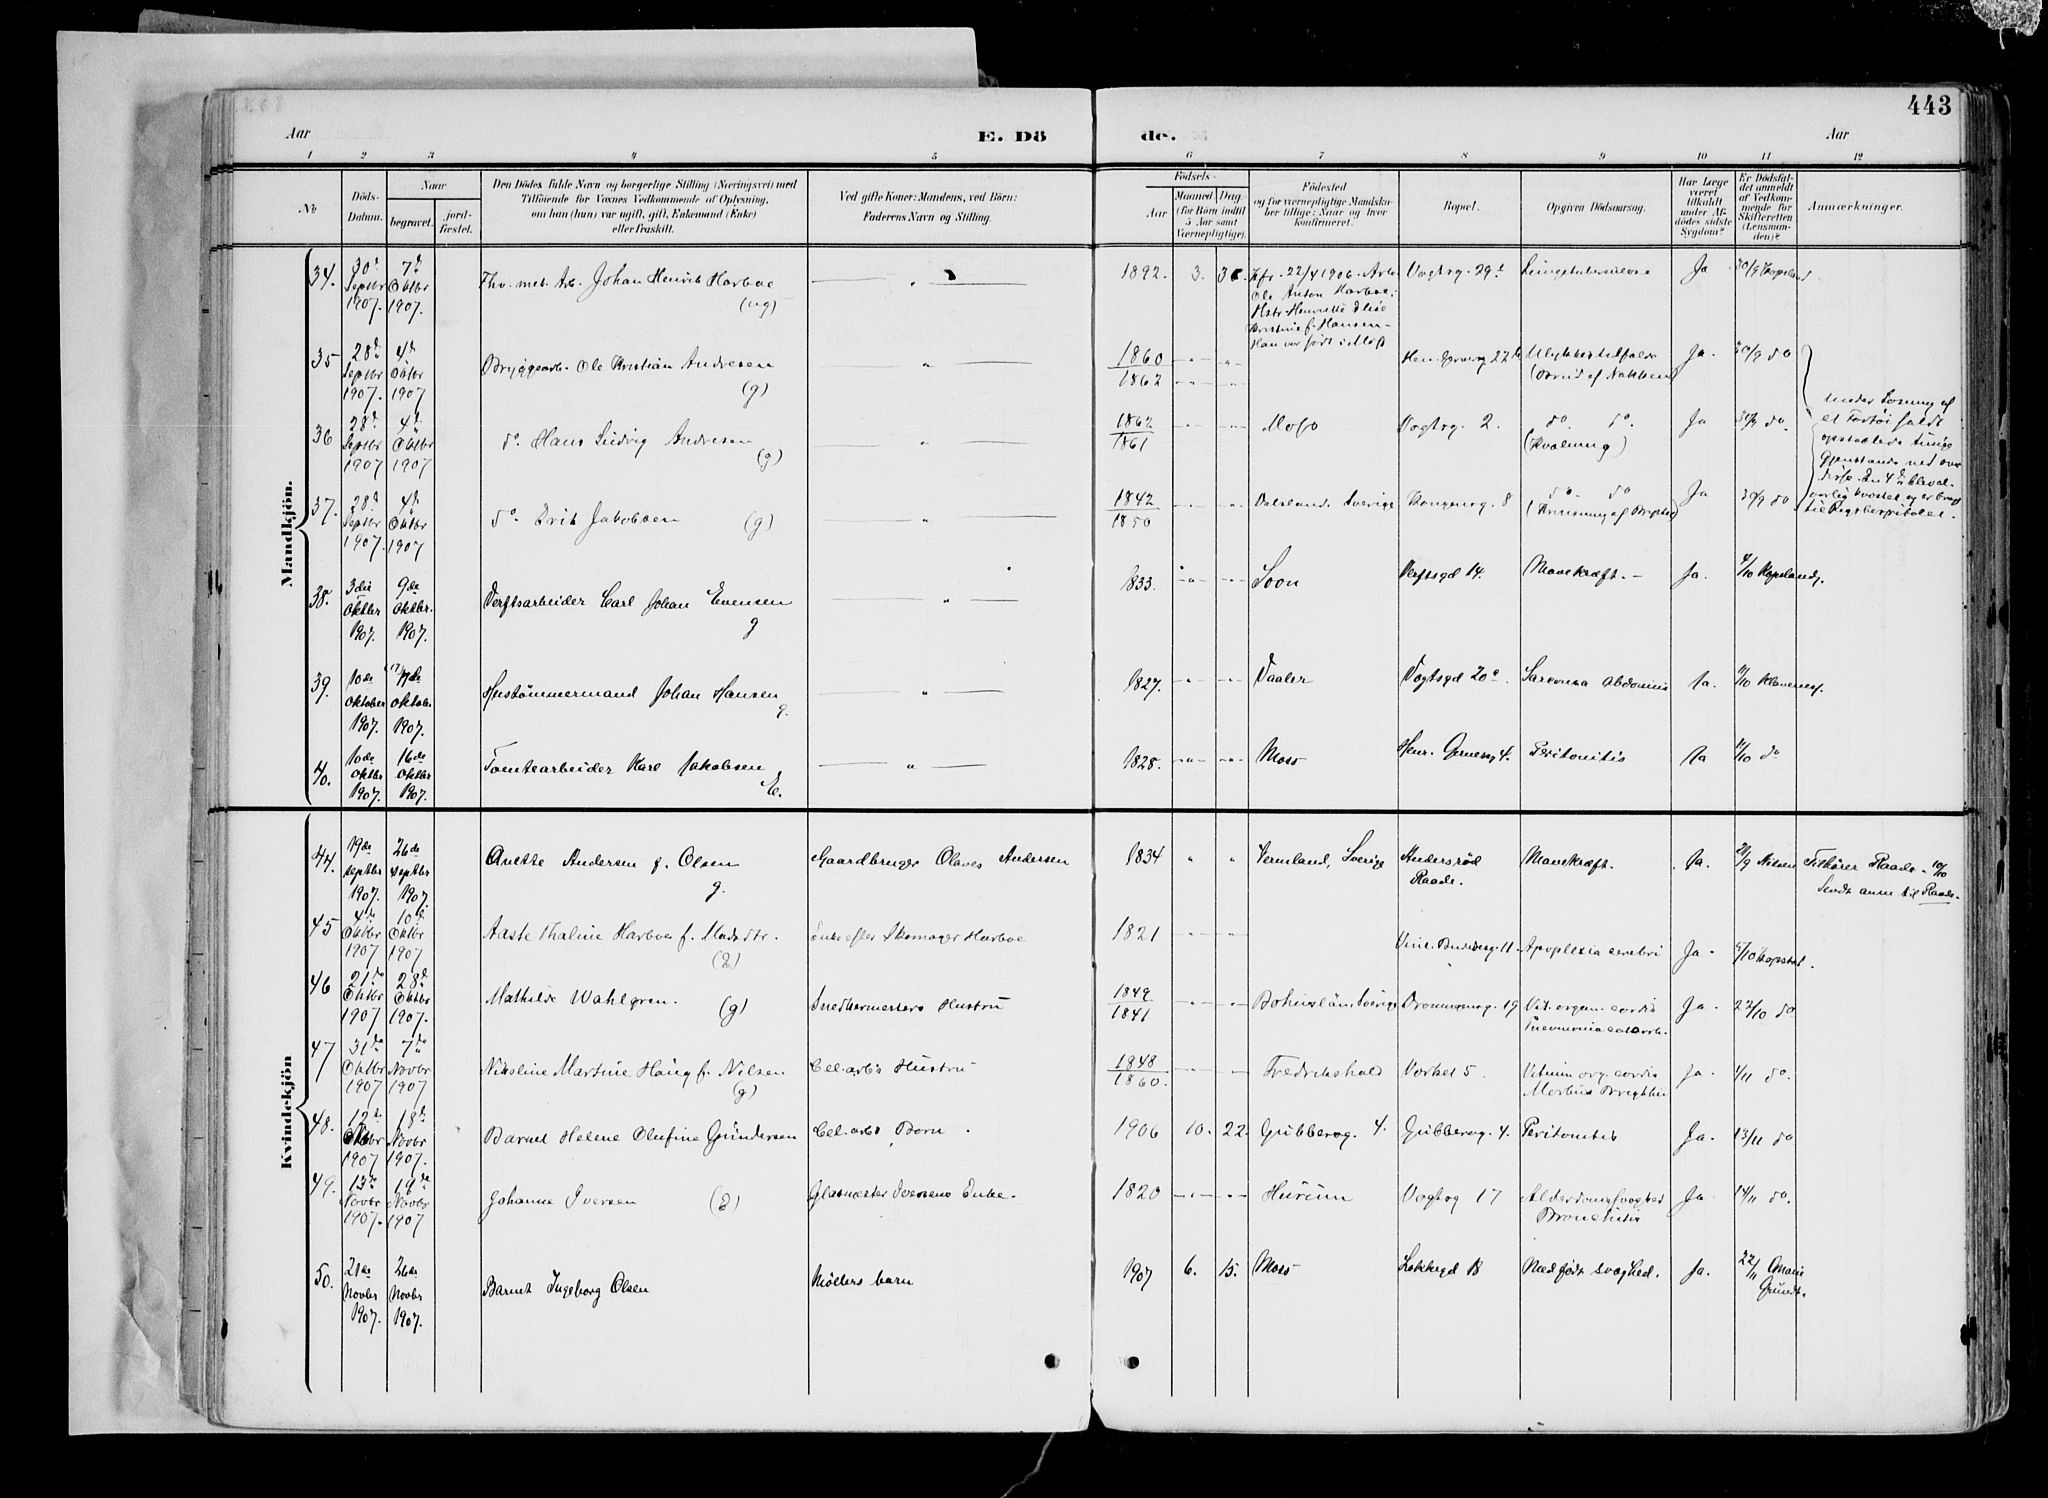 443
Aar
E. Dö
de.
Aar
1 2 3 4 5 6 7 8 9 10 11 12
No
Döds-
Datum.
Naar
begravet.
jord-
fæstet.
Den Dödes fulde Navn og borgerlige Stilling (Næringsvei) med
Tilföiende for Voxnes Vedkommende af Oplysning,
om han (hun) var ugift, gift, Enkemand (Enke)
eller fraskilt.
Ved gifte Koner: Mandens, ved Börn:
Faderens Navn og Stilling.
Födsels-
Aar
Maaned
Dag.
(for Börn indtil
5 Aar samt
Værnepligtige).
Födested
og for værnepligtige Mandska-
ber tillige: Naar og hvor
konfirmeret.
Bopæl.
Opgiven Dödsaarsag.
Har Læge
været
tilkaldt
under Af-
dödes sidste
Sygdom?
Er Dödsfal-
det anmeldt
af Vedkom-
mende for
Skifteretten
(Lensman-
den)?
Anmærkninger.
Mandkjön.
34. 30d Septbr 1907. 7d Oktbr 1907. Johan Henrik Harboe (ug) " 1892. 3. Kfr. 22/4 1906. Arb. Vogtsg. 29 Lungetuberculose Ja 30/9
Ole Anton Harboe;
Hstr Henriette Elise
Kristine f. Hansen -
Han var født i Moss
35 28d Septbr 1907. 4d Oktbr 1907 Bryggearb. Ole Kristian Andresen (g) " 1860 / 1862 - " - Ulykkestilfælde Ja. 30/9 do
(Brud af Nakken)
36 28d Septbr 1907 4d Oktbr 1907 do Hans Ludvig Andresen (g) " 1862 / 1861 Moss Vogtsg. 2. do. do. Ja 30/9 do.
(Kvælning)
37. 28d Septbr 1907. 4d Oktbr 1907 do Erik Jakobsen (g) " 1842 / 1850 - " - Sverige Kongensg. 8 do. do Ja 30/9 do
under Losning af
et Fartøi faldt
opstablede tunge
Gjenstande ned over
disse. Den 4de blev al-
vorlig kvæstet og er bragt
til Rigshospitalet.
38. 3die Oktbr 1907. 9de Oktbr. 1907. Verftsarbeider Carl Johan Evensen g " 1833. - " - Soon Verftsgd 14. Mavekræft. - Ja. 4/10
39. 10de Oktober 1907. 17de Oktober 1907. Hustømmermand Johan Hansen g. " 1827. - " - Vaaler Vogtsgd 20 Sarcoma abdominis Ja. 11/10
40. 10de Oktbr 1907. 16de Oktbr 1907. Tomtearbeider Karl Jakobsen E. " 1828. - " - Moss Henr. Gernersg 4. Peritonitis Ja 11/10 do
Kvindekjön
44. 19de septbr 1907. 26de septbr 1907. Anette Andersen f. Olsen g. Gaardbruger Olaves Andersen 1834 " " Vermland, Sverige Andersrød Raade. Mavekræft. Ja. 21/9 Nilsen Tilhører Raade. 10/10
Sendt anm til Raade.
45 4de Oktbr 1907 10d Oktbr 1907 Aaste Thaline Harboe f. Madsdtr. Enke efter Skomager Harboe 1821 - " - Apoplexia cerebri Ja. 5/10
46 21de Oktbr 1907 28d Oktbr 1907. Mathilde Wahlgren. (g) Snedkermesters Hustru 1849 / 1841 - " - Bohuslän Sverige Dronningsg. 19 Vit. organ. cordis Ja. 22/10 do
Pneumonia catarrh.
47 31de Oktbr 1907 7de Novbr 1907 Nikoline Martine Haug f. Nilsen (g) Cel. arb's Hustru 1848 / 1860. - " - Fredrikshald Vorket 5. Vitium org. cordis Ja. 1/11 do.
Morbus Brigthii
48. 12d 1907 18d Novbr 1907. Barnet Helene Olufine Gundersen Cel. arbs Barn. 1906 10. 22. Gubberog. 4. Gubberog. 4. Peritonitis Ja. 13/11 do
49. 13de Novbr 1907. 19de Novbr 1907 Johanne Iversen Glasmester Iversens Enke. 1820 - " - Hurum Vogtsg 17 Alderdomssvaghed Ja. 14/11 do.
Bronchitis
50. 21de Novbr 1907. 26de Novbr 1907. Barnet Ingeborg Olsen Møllers barn 1907 6. 15. Moss Løkkegd 18 Medfødt svaghed. Ja. 22/11